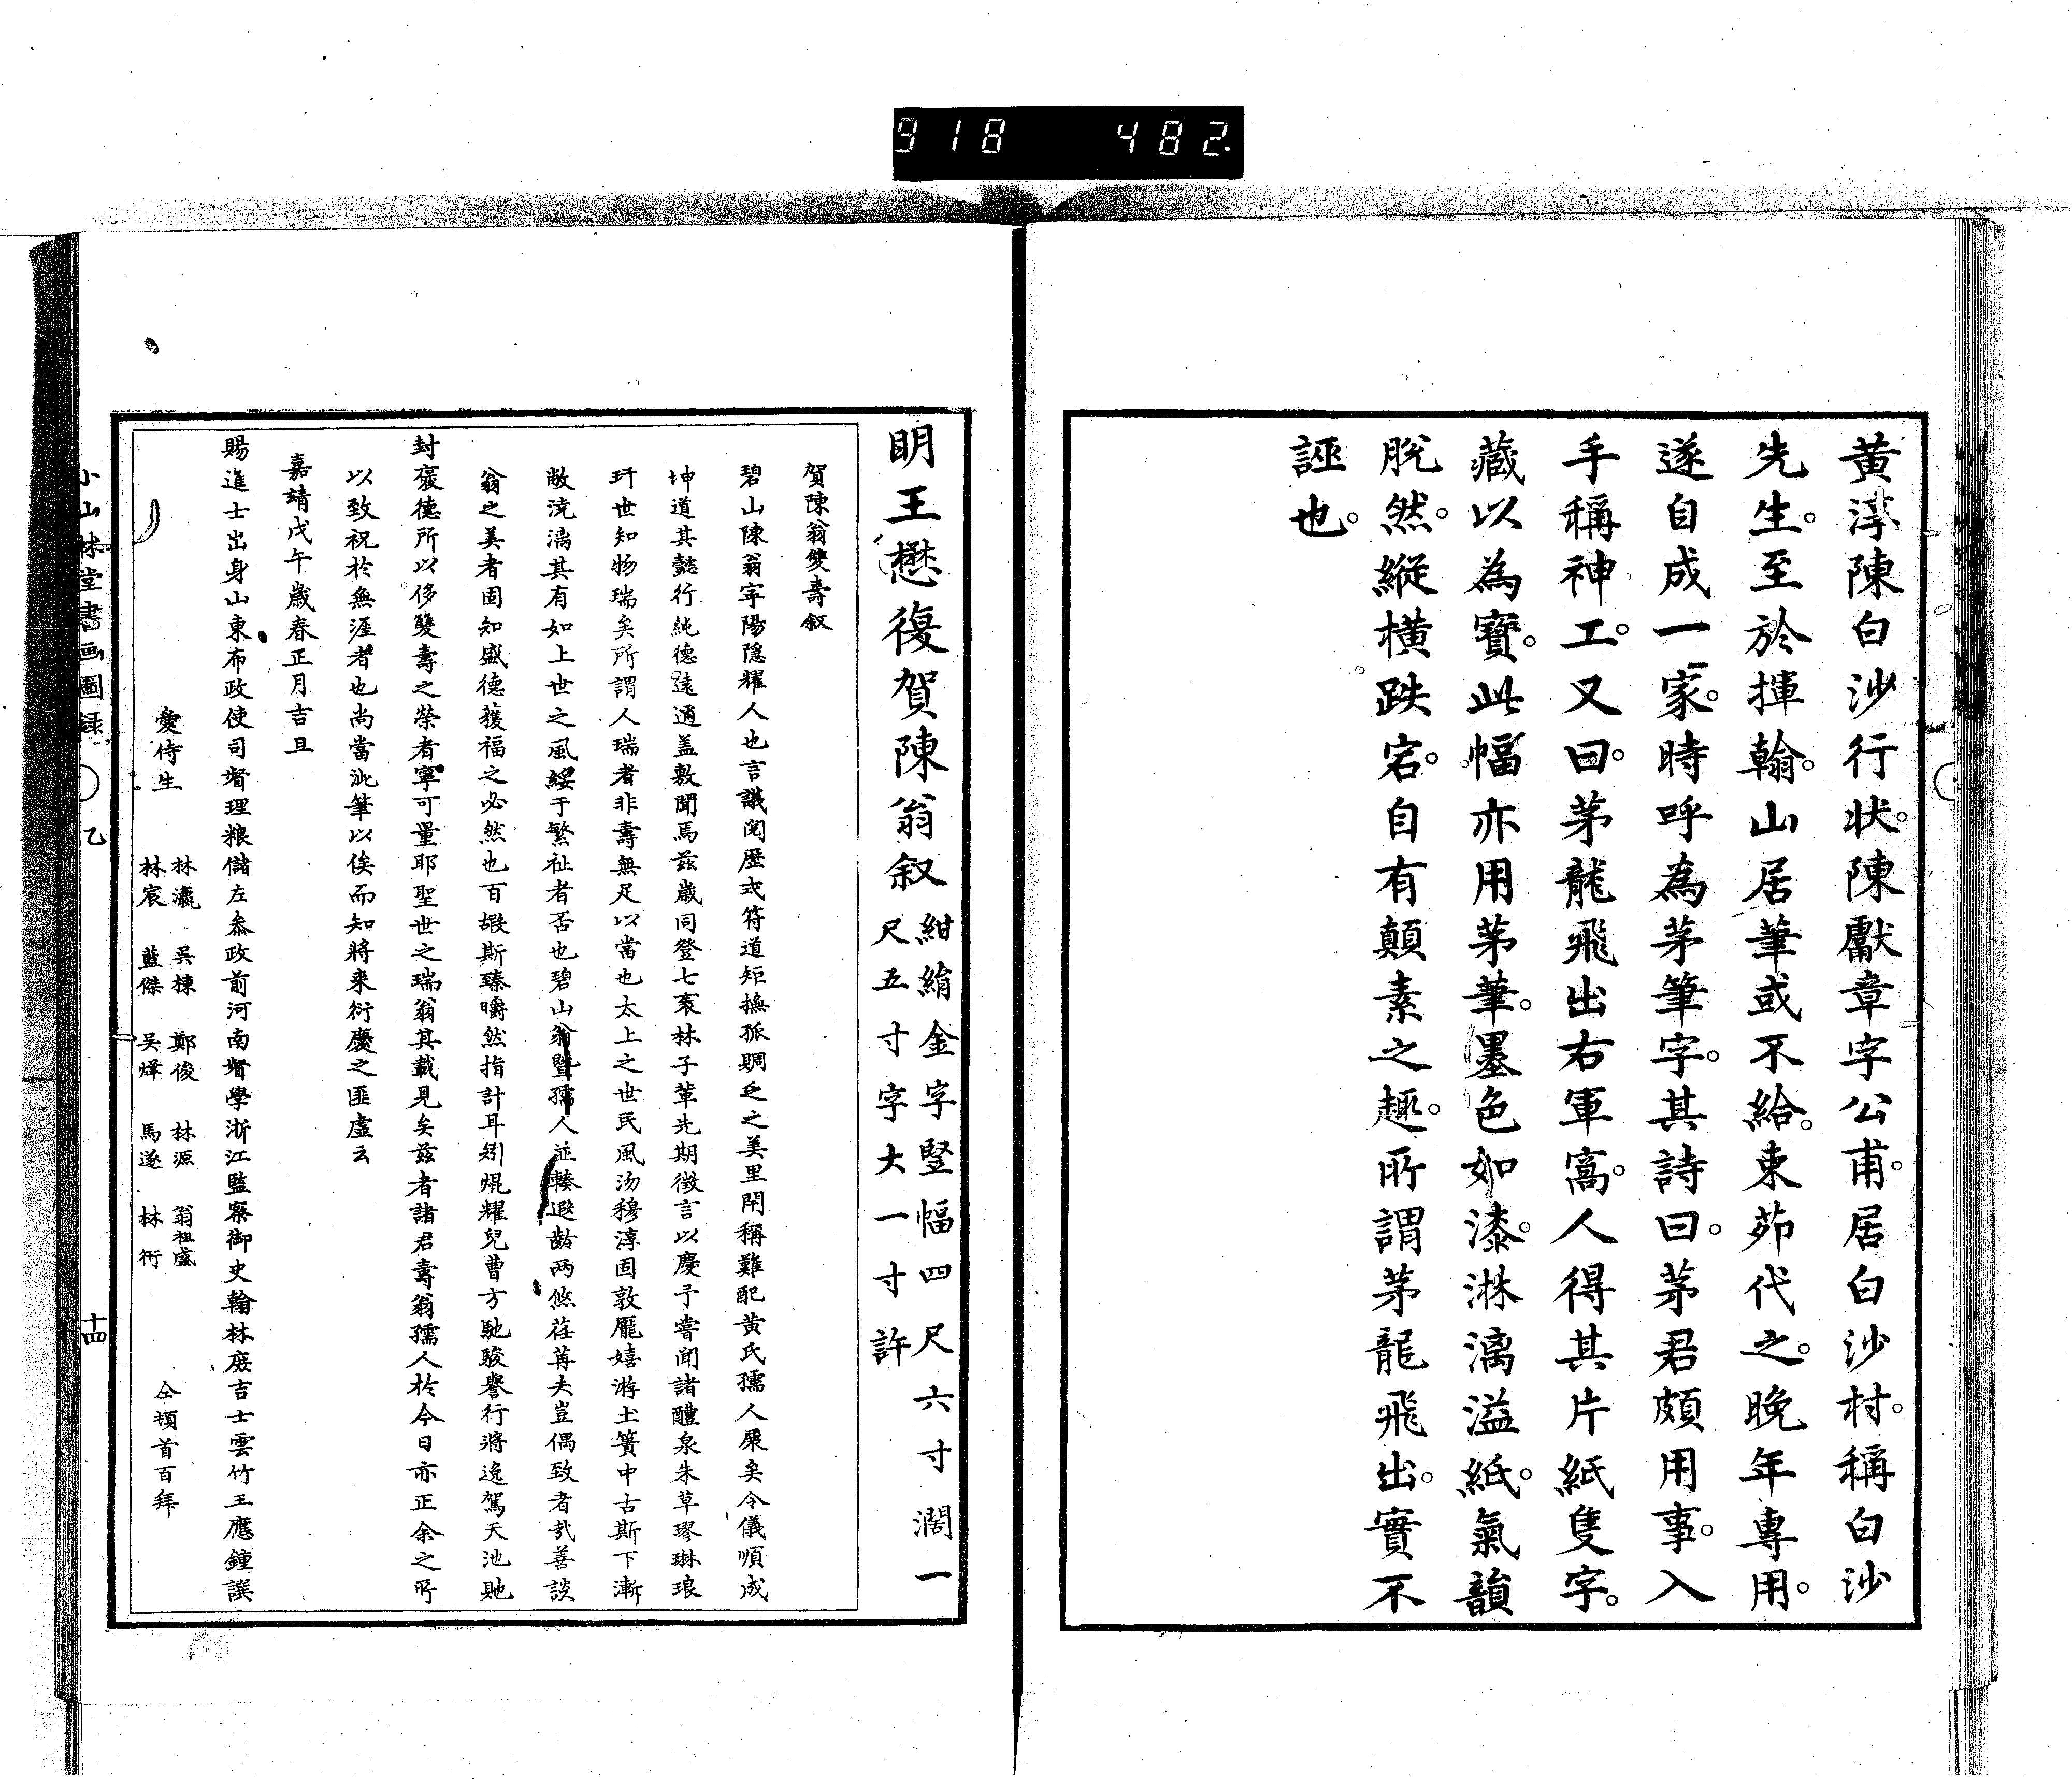 918 482
黄淳陳白沙行状。陳獻章字公甫。居白沙村。稱白沙
先生。至於揮翰。山居筆或不給。束茆代之。晚年專用。
遂自成一家。時呼為茅筆字。其詩曰。茅君頗用事。入
手稱神工。又曰。茅龍飛出右軍窩。人得其片紙隻字。
藏以為寳。此幅亦用茅筆。墨色如漆。淋漓溢紙。氣韻
脱然。縱横跌宕。自有顛素之趣。所謂茅龍飛出。實不
誣也。
明王懋復賀陳翁叙
紺絹金字竪幅四尺六寸濶一
尺五寸字大一寸許
賀陳翁雙壽叙
碧山陳翁寧陽隠耀人也言議閎歴式符道矩撫孤賙乏之美里閈稱難配黄氏孺人展矣令儀順成
坤道其懿行純德遠邇盖敷聞焉兹歲同登七袠林子軰先期徴言以慶予嘗聞諸醴泉朱草璆琳琅
玕世知物瑞矣所謂人瑞者非壽無足以當也太上之世民風沕穆淳固敦龎嬉游土簣中古斯下漸
敝澆漓其有如上世之風綏于繁祉者否也碧山翁曁孺人並轃遐齡两悠荏苒夫豈偶致者㦲善談
翁之美者固知盛德獲福之必然也百嘏斯臻皭然指計耳矧焜耀兒曹方馳駿譽行將逸駕天池貤
封襃德所以侈雙壽之榮者寧可量耶聖世之瑞翁其載見矣兹者諸君壽翁孺人於今日亦正余之所
以致祝於無涯者也尚當泚筆以俟而知將来衍慶之匪虚云
嘉靖戊午歲春正月吉旦
賜進士出身山東布政使司督理粮儲左叅政前河南督學浙江監察御史翰林庶吉士雲竹王應鍾譔
愛侍生
林瀛 吳棟 鄭俊 林源 翁祖盛
林宸 藍傑 吴燁 馬遂 林衎
仝頓首百拜
小山林堂書画圖録 乙 十四